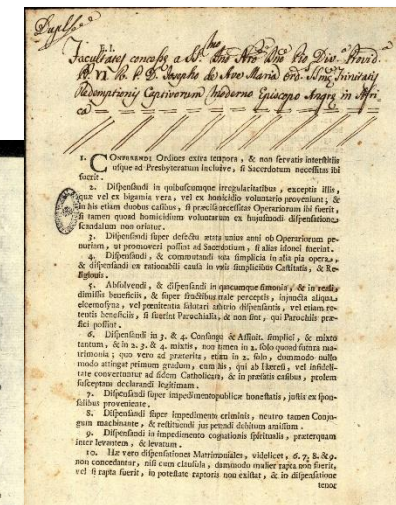 Duplf.
F. I.
Facultates concessæ a SSmo Dno Nro Dno Pio Div.a Provid.a
P. VI. R. P. D. Josepho de Ave Maria Ord. SSmæ Trinitatis
Redemptionis Captivorum Moderno Episcopo Angræ in Afri
ca
1. CONFERENDI Ordines extra tempora, & non servatis interstitiis
usque ad Presbyteratum inclusive, si Sacerdotum necessitas ibi
fuerit.
2. Dispensandi in quibuscumque irregularitatibus, exceptis illis,
quæ vel ex bigamia vera, vel ex homicidio voluntario proveniunt; &
in his etiam duobus casibus, si præcisa necessitas Operariorum ibi fuerit,
si tamen quoad homicidium voluntarium ex hujusmodi dispensatione
scandalum non oriatur.
3. Dispensandi super defectu ætatis unius anni ob Operariorum pe-
nuriam, ut promoveri possint ad Sacerdotium, si alias idonei fuerint.
4. Dispensandi, & commutandi vota simplicia in alia pia opera,
& dispensandi ex rationabili causa in votis simplicibus Castitatis, & Re-
ligionis.
5. Absolvendi, & dispensandi in quacumque simonia, & in reali
dimissis beneficiis, & super fructibus male perceptis, injuncta aliqua
eleemosyna, vel pœnitentia salutari arbitrio dispensantis, vel etiam re-
tentis beneficiis, si fuerint Parochialia, & non sint, qui Parochiis præ-
fici possint.
6. Dispensandi in 3. & 4. Consang. & Affinit. simplici, & mixto
tantum, & in 2. 3. & 4. mixtis, non tamen in 2. solo quoad futura ma-
trimonia; quo vero ad præterita, etiam in 2. solo, dummodo nullo
modo attingat primum gradum, cum iis, qui ab Hæresi, vel infideli-
tate convertuntur ad fidem Catholicam, & in præfatis casibus, prolem
susceptam declarandi legitimam.
7. Dispensandi super impedimento publicæ honestatis, justis ex spon-
salibus proveniente.
8. Dispensandi super impedimento criminis, neutro tamen Conju-
gum machinante, & restituendi jus petendi debitum amissum.
9. Dispensandi in impedimento cognationis spiritualis, præterquam
inter levantem, & levatum.
10. Hæ vero dispensationes Matrimoniales, videlicet, 6. 7. 8. & 9.
non concedantur, nisi cum clausula, dummodo mulier rapta non fuerit,
vel si rapta fuerit, in potestate raptoris non existat, & in dispensatione
tenor